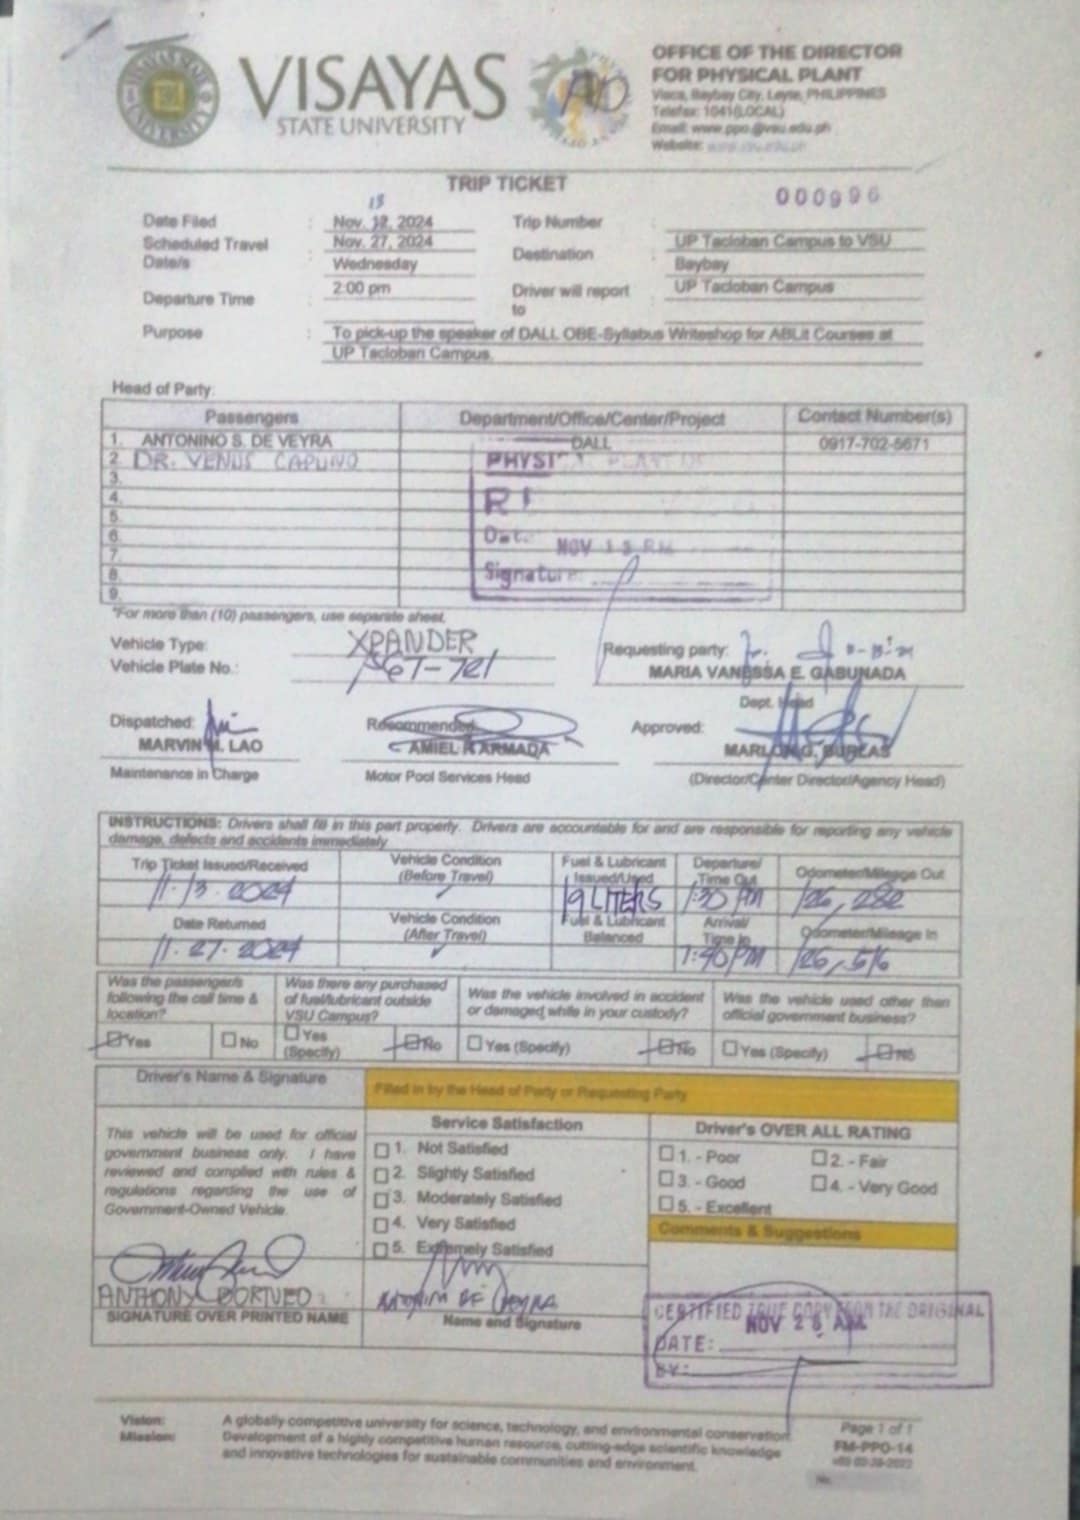 VISAYAS
STATE UNIVERSITY
OFFICE OF THE DIRECTOR
FOR PHYSICAL PLANT
Visca, Baybay City, Leyte, PHILIPPINES
Telefax: 1041(LOCAL)
Email: www.ppo@vsu.edu.ph
Website:
TRIP TICKET
000996
13
Date Filed : Nov. 12, 2024 Trip Number
Scheduled Travel Date/s : Nov. 27, 2024 Wednesday
Destination : UP Tacloban Campus to VSU Baybay
Departure Time : 2:00 pm
Driver will report to : UP Tacloban Campus
Purpose : To pick-up the speaker of DALL OBE-Syllabus Writeshop for ABLit Courses at
UP Tacloban Campus.
Head of Party:
Passengers Department/Office/Center/Project Contact Number(s)
1. ANTONINO S. DE VEYRA DALL 0917-702-5671
2. DR. VENUS CAPUNO
3.
4.
5.
6.
7.
8.
9.
PHYSI PLANT
Date: NOV 13 PM
Signature:
*For more than (10) passengers, use separate sheet.
Vehicle Type: XPANDER
Vehicle Plate No.:
Requesting party:
MARIA VANESSA E. GABUNADA
Dept. Head
Dispatched:
MARVIN M. LAO
Maintenance in Charge
Recommended:
AMIEL R ARMADA
Motor Pool Services Head
Approved:
MARLON G. BURLAS
(Director/Center Director/Agency Head)
INSTRUCTIONS: Drivers shall fill in this part properly. Drivers are accountable for and are responsible for reporting any vehicle
damage, defects and accidents immediately
Trip Ticket Issued/Received Vehicle Condition (Before Travel) Fuel & Lubricant Issued/Used Departure/ Time Out Odometer/Mileage Out
11-13-2024 19 LITERS 1:30 PM 126,282
Date Returned Vehicle Condition (After Travel) Fuel & Lubricant Balanced Arrival/ Time In Odometer/Mileage In
11-27-2024 7:40 PM 126,516
Was the passenger/s following the call time & location?
Yes No
Was there any purchased of fuel/lubricant outside VSU Campus?
Yes (Specify) No
Was the vehicle involved in accident or damaged while in your custody?
Yes (Specify) No
Was the vehicle used other than official government business?
Yes (Specify) No
Driver's Name & Signature
This vehicle will be used for official
government business only. I have
reviewed and complied with rules &
regulations regarding the use of
Government-Owned Vehicle.
ANTHONY BORNEO
SIGNATURE OVER PRINTED NAME
Filled in by the Head of Party or Requesting Party
Service Satisfaction
1. Not Satisfied
2. Slightly Satisfied
3. Moderately Satisfied
4. Very Satisfied
5. Extremely Satisfied
ANTONINO DE VEYRA
Name and Signature
Driver's OVER ALL RATING
1. - Poor 2. - Fair
3. - Good 4. - Very Good
5. - Excellent
Comments & Suggestions
CERTIFIED TRUE COPY FROM THE ORIGINAL
NOV 28 AM
DATE:
BY:
Vision: A globally competitive university for science, technology, and environmental conservation
Mission: Development of a highly competitive human resource, cutting-edge scientific knowledge
and innovative technologies for sustainable communities and environment.
Page 1 of 1
FM-PPO-14
No.